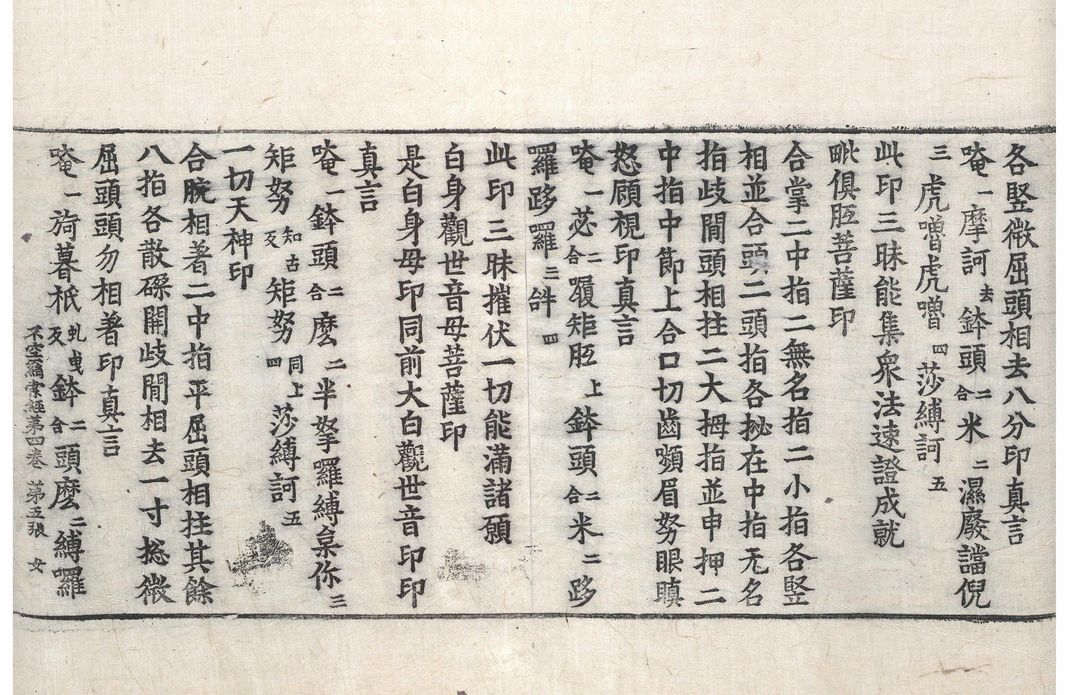 各竪微屈頭相去八分印真言
唵一摩訶去鉢頭二合米二濕廢讄倪
三虎嚕虎嚕四莎縛訶五
此印三昧能集衆法速證成就
毗俱胝菩薩印
合掌二中指二無名指二小指各竪
相並合頭二頭指各拟在中指无名
指歧間頭相拄二大拇指並申押二
中指中節上合口切齒嚬眉努眼瞋
怒顧視印真言
唵一苾二合履矩胝上鉢頭二合米二跢
羅跢羅三𤙖四
此印三昧摧伏一切能滿諸願
白身觀世音母菩薩印
是白身母印同前大白觀世音印印
真言
唵一鉢頭二合麽二半拏羅縛枲你三
矩努知古反矩努同上四莎縛訶五
一切天神印
合腕相著二中指平屈頭相拄其餘
八指各散磔開歧間相去一寸捴微
屈頭頭勿相著印真言
唵一旖暮祇虬曳反鉢二合頭麽二縛囉
不空羂索經第四卷 第五張 女